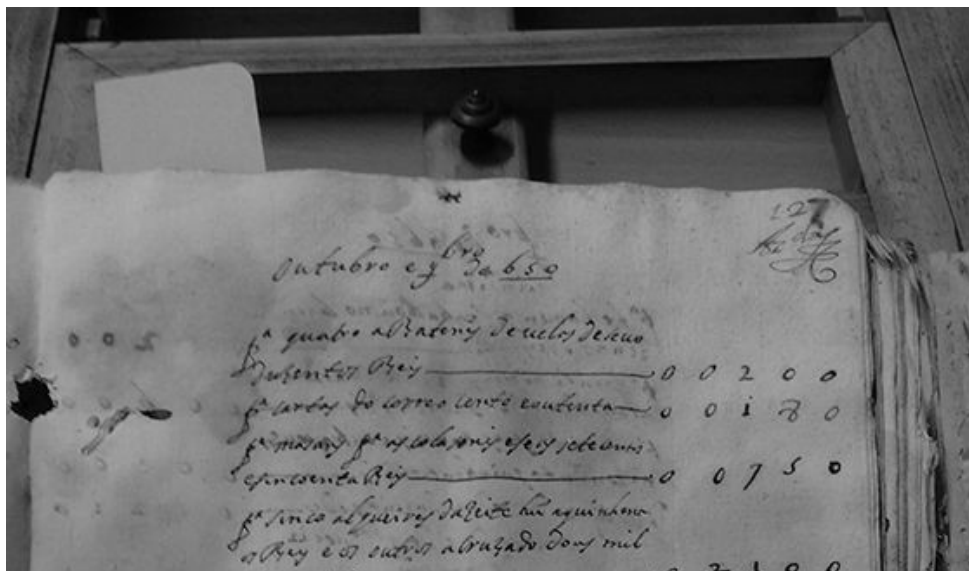 127
outubro e 9bro de 650
pª quatro alRateris de velas de seuo
duzentos Reis 0 0 2 0 0
pª cartas do correo cento e outenta 0 0 1 8 0
pª masans pª as colasonis e seis sete centos
e sincoenta Reis 0 0 7 5 0
pª sinco alqueires dazeite hũ a quinhent
os Reys e os outros a cruzado dous mil
2 1 0 0